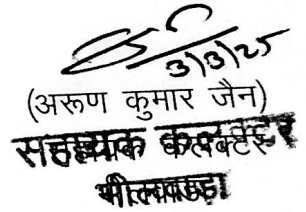 3/3/25
(अरूण कुमार जैन)
सहायक कलक्टर
भीलवाड़ा